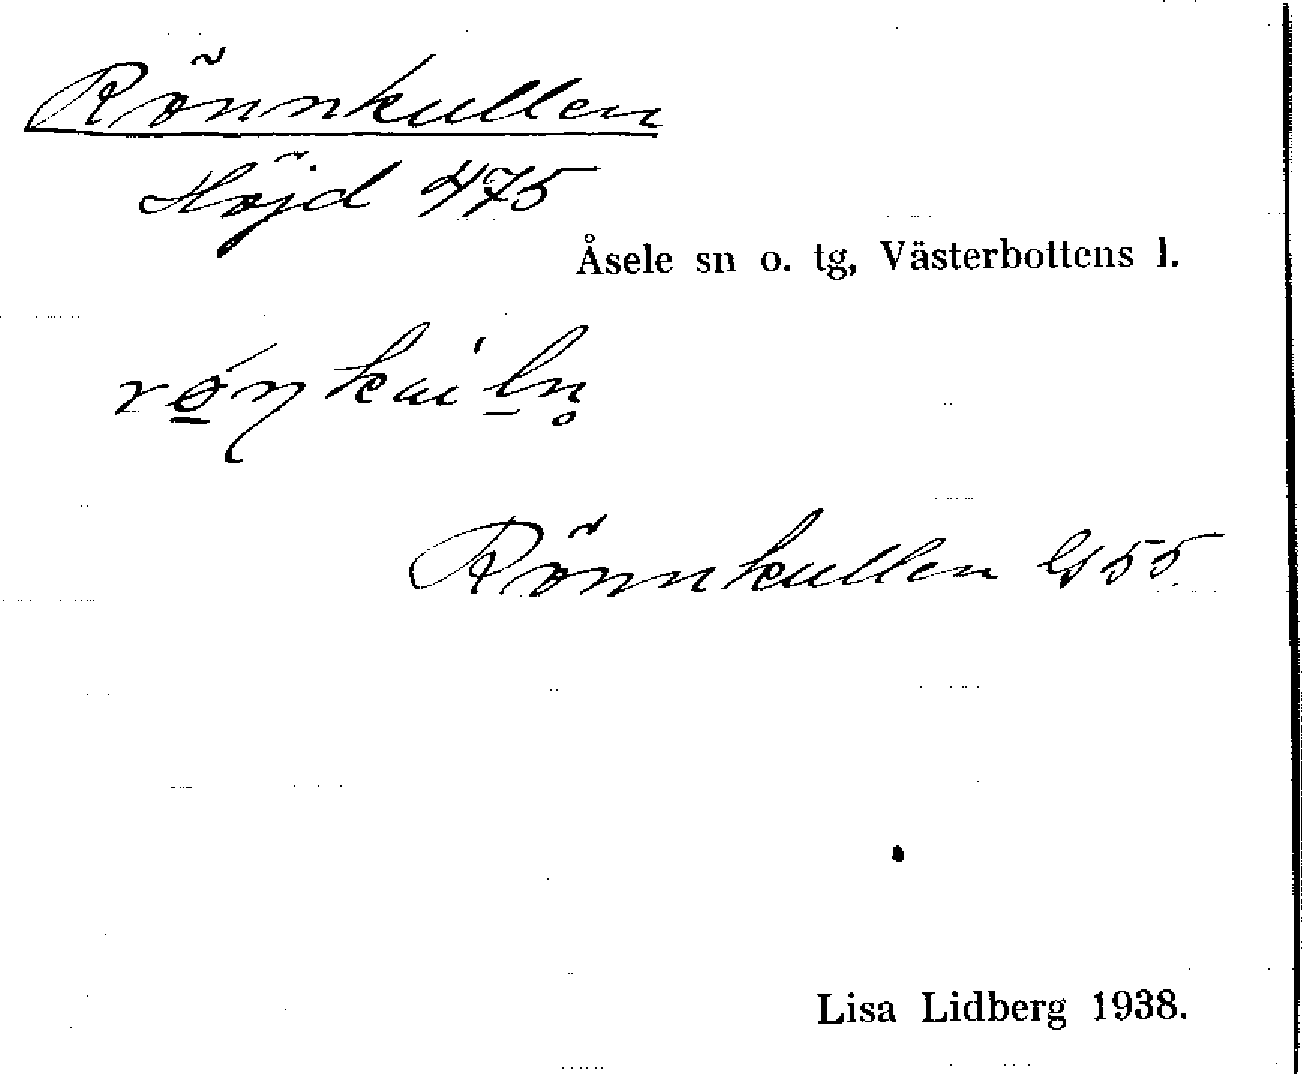 Rönnkullen
Höjd 475
Åsele sn o. tg, Västerbottens l.
Rönnkullen GS 55
Lisa Lidberg 1938.